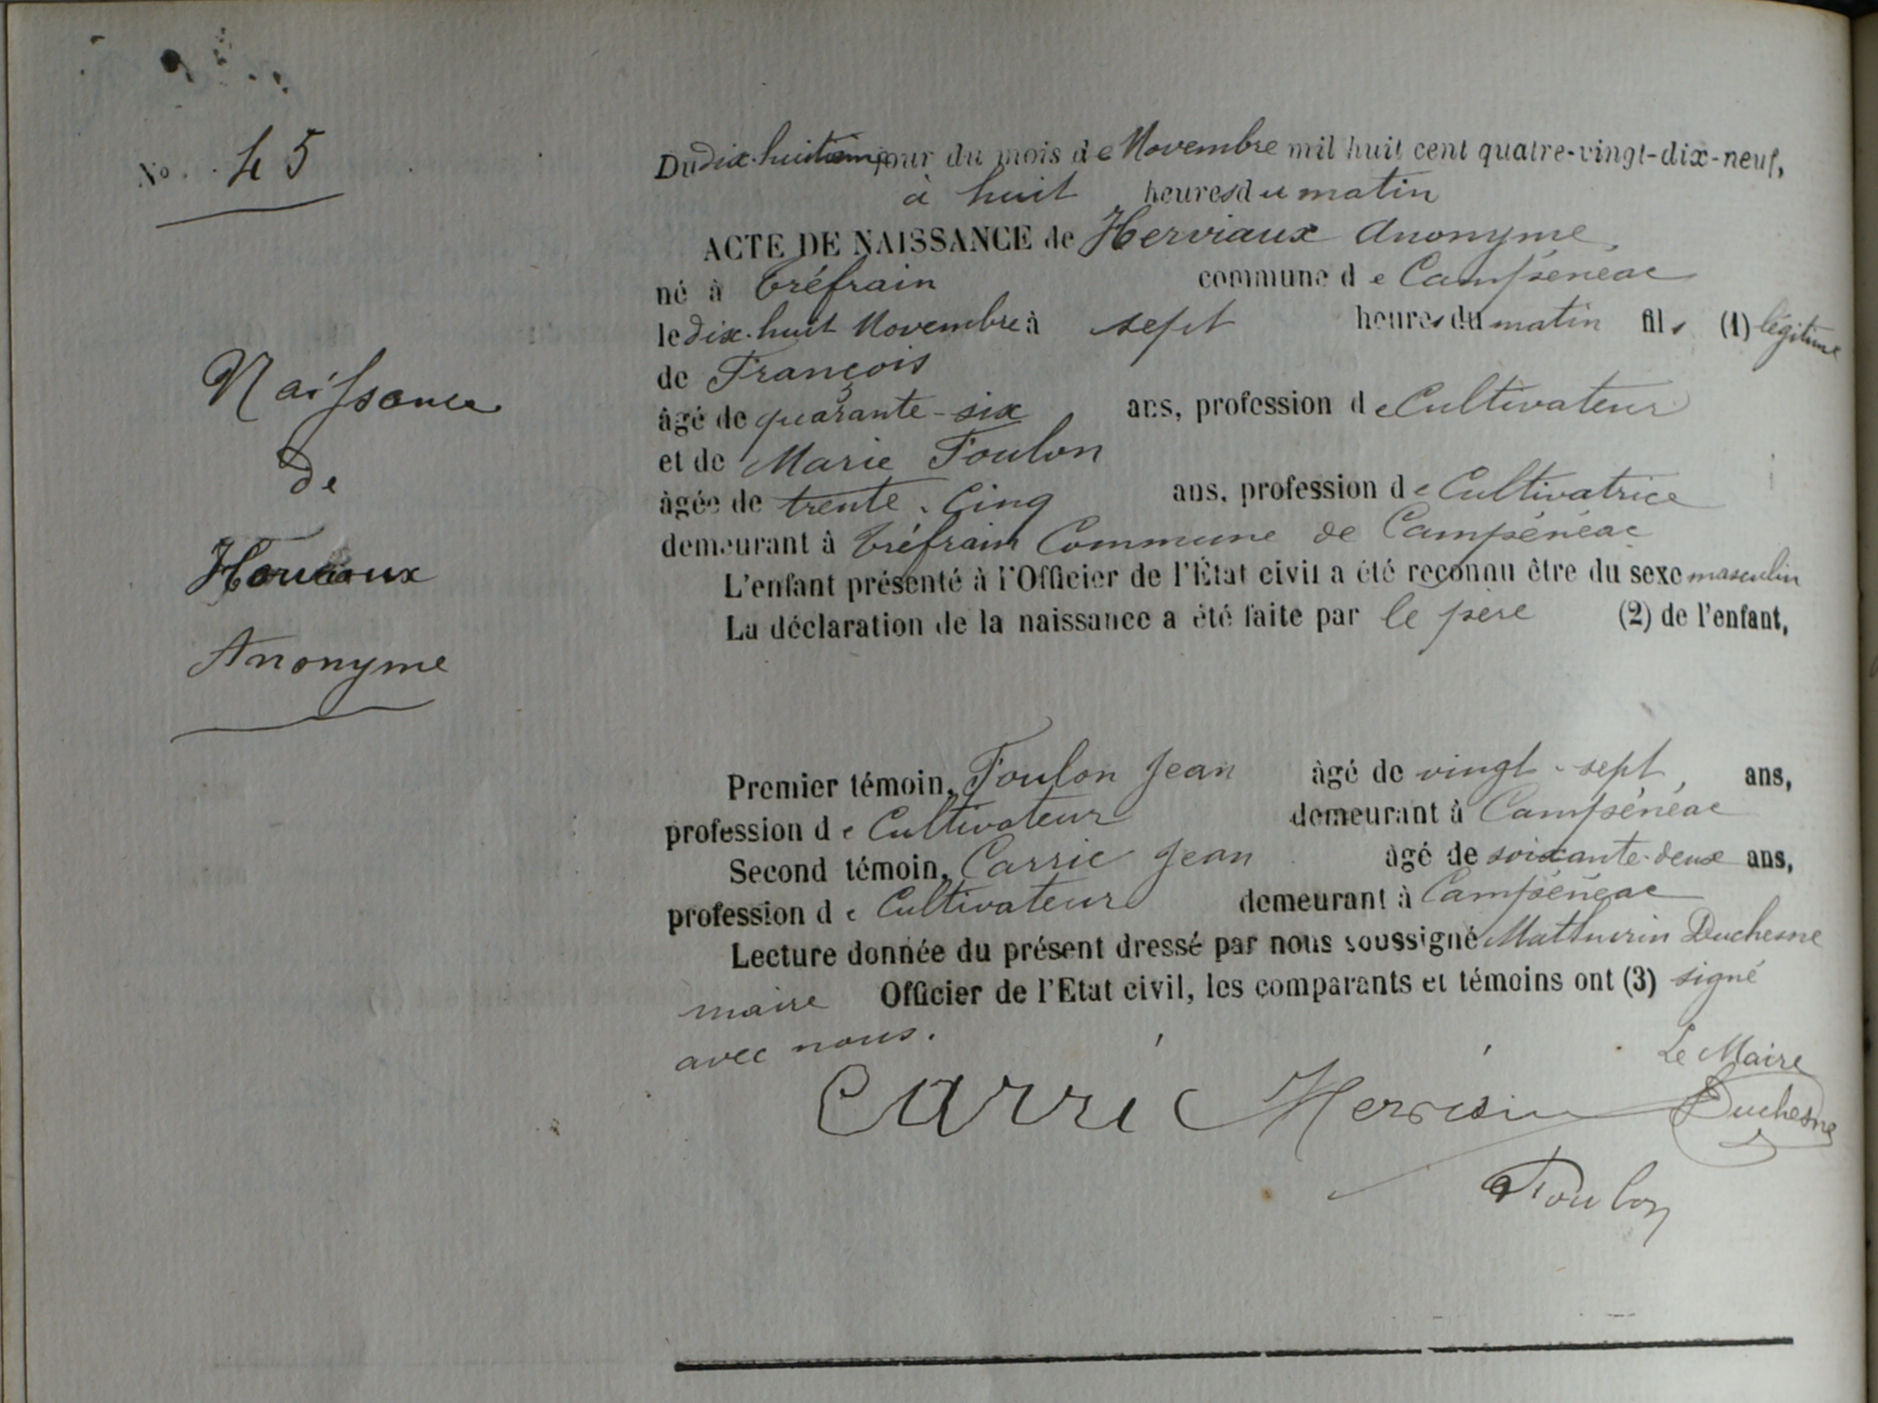 No. 45
Naissance
de
Herviaux
Anonyme
Du dix-huitième jour du mois de Novembre mil huit cent quatre-vingt-dix-neuf,
à huit heures du matin
ACTE DE NAISSANCE de Herviaux Anonyme,
né à Tréfrain commune de Campénéac
le dix-huit Novembre à sept heures du matin fils (1) légitime
de François
âgé de quarante-six ans, profession de Cultivateur
et de Marie Foulon
âgée de trente-Cinq ans, profession de Cultivatrice
demeurant à Tréfrain Commune de Campénéac
L'enfant présenté à l'Officier de l'État civil a été reconnu être du sexe masculin
La déclaration de la naissance a été faite par le père (2) de l'enfant,
Premier témoin, Foulon Jean âgé de vingt-sept, ans,
profession de Cultivateur demeurant à Campénéac
Second témoin, Carric Jean âgé de soixante-deux ans,
profession de Cultivateur demeurant à Campénéac
Lecture donnée du présent dressé par nous soussigné Mathurin Duchesne
maire Officier de l'Etat civil, les comparants et témoins ont (3) signé
avec nous.
Le Maire
Carric Duchesne
Foulon